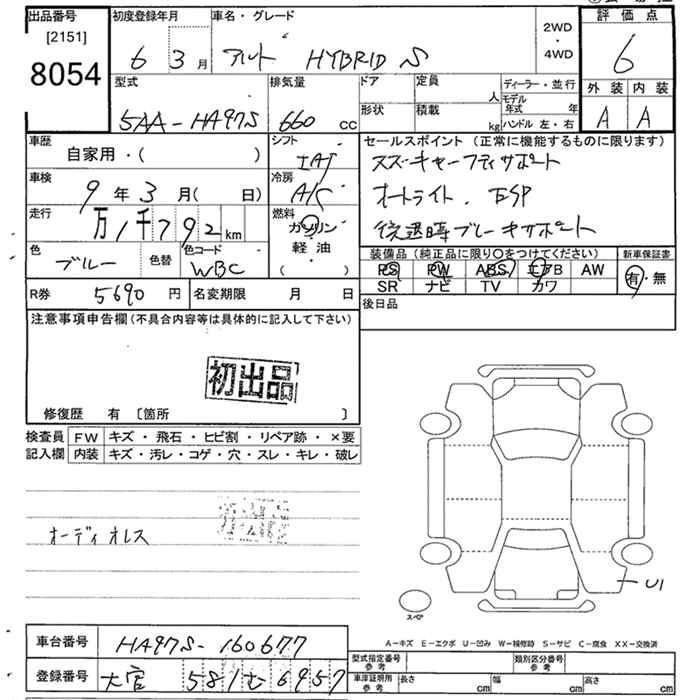 出品番号 [2151] 8054
初度登録年月 6 3月
車名・グレード アルト HYBRID S
2WD・4WD
評価点 6
型式 5AA-HA97S
排気量 660 cc
ドア
定員 人
形状
積載 kg
ディーラー・並行
モデル年式 年
ハンドル 左・右
外装 内装
A A
車歴 自家用・( )
シフト IAT
セールスポイント (正常に機能するものに限ります)
スズキセーフティサポート
オートライト . ESP
後退時ブレーキサポート
車検 9年3月( 日)
冷房 A/C
走行 万1千792km
燃料 ガソリン 軽油・( )
色 ブルー
色替
色コード WBC
装備品 (純正品に限り○をつけてください)
新車保証書
PS PW ABS エアB AW
SR ナビ TV カワ
有・無
R券 5690円
名変期限 月 日
後日品
注意事項申告欄 (不具合内容等は具体的に記入して下さい)
初出品
修復歴 有 [箇所 ]
検査員記入欄
FW キズ・飛石・ヒビ割・リペア跡・×要
内装 キズ・汚レ・コゲ・穴・スレ・キレ・破レ
オーディオレス
U1
スペア
A-キズ E-エクボ U-凹み W-補修跡 S-サビ C-腐食 XX-交換済
車台番号 HA97S-160677
登録番号 大宮 581む6957
型式指定番号 参考
類別区分番号 参考
車庫証明用 参考 長さ cm 幅 cm 高さ cm